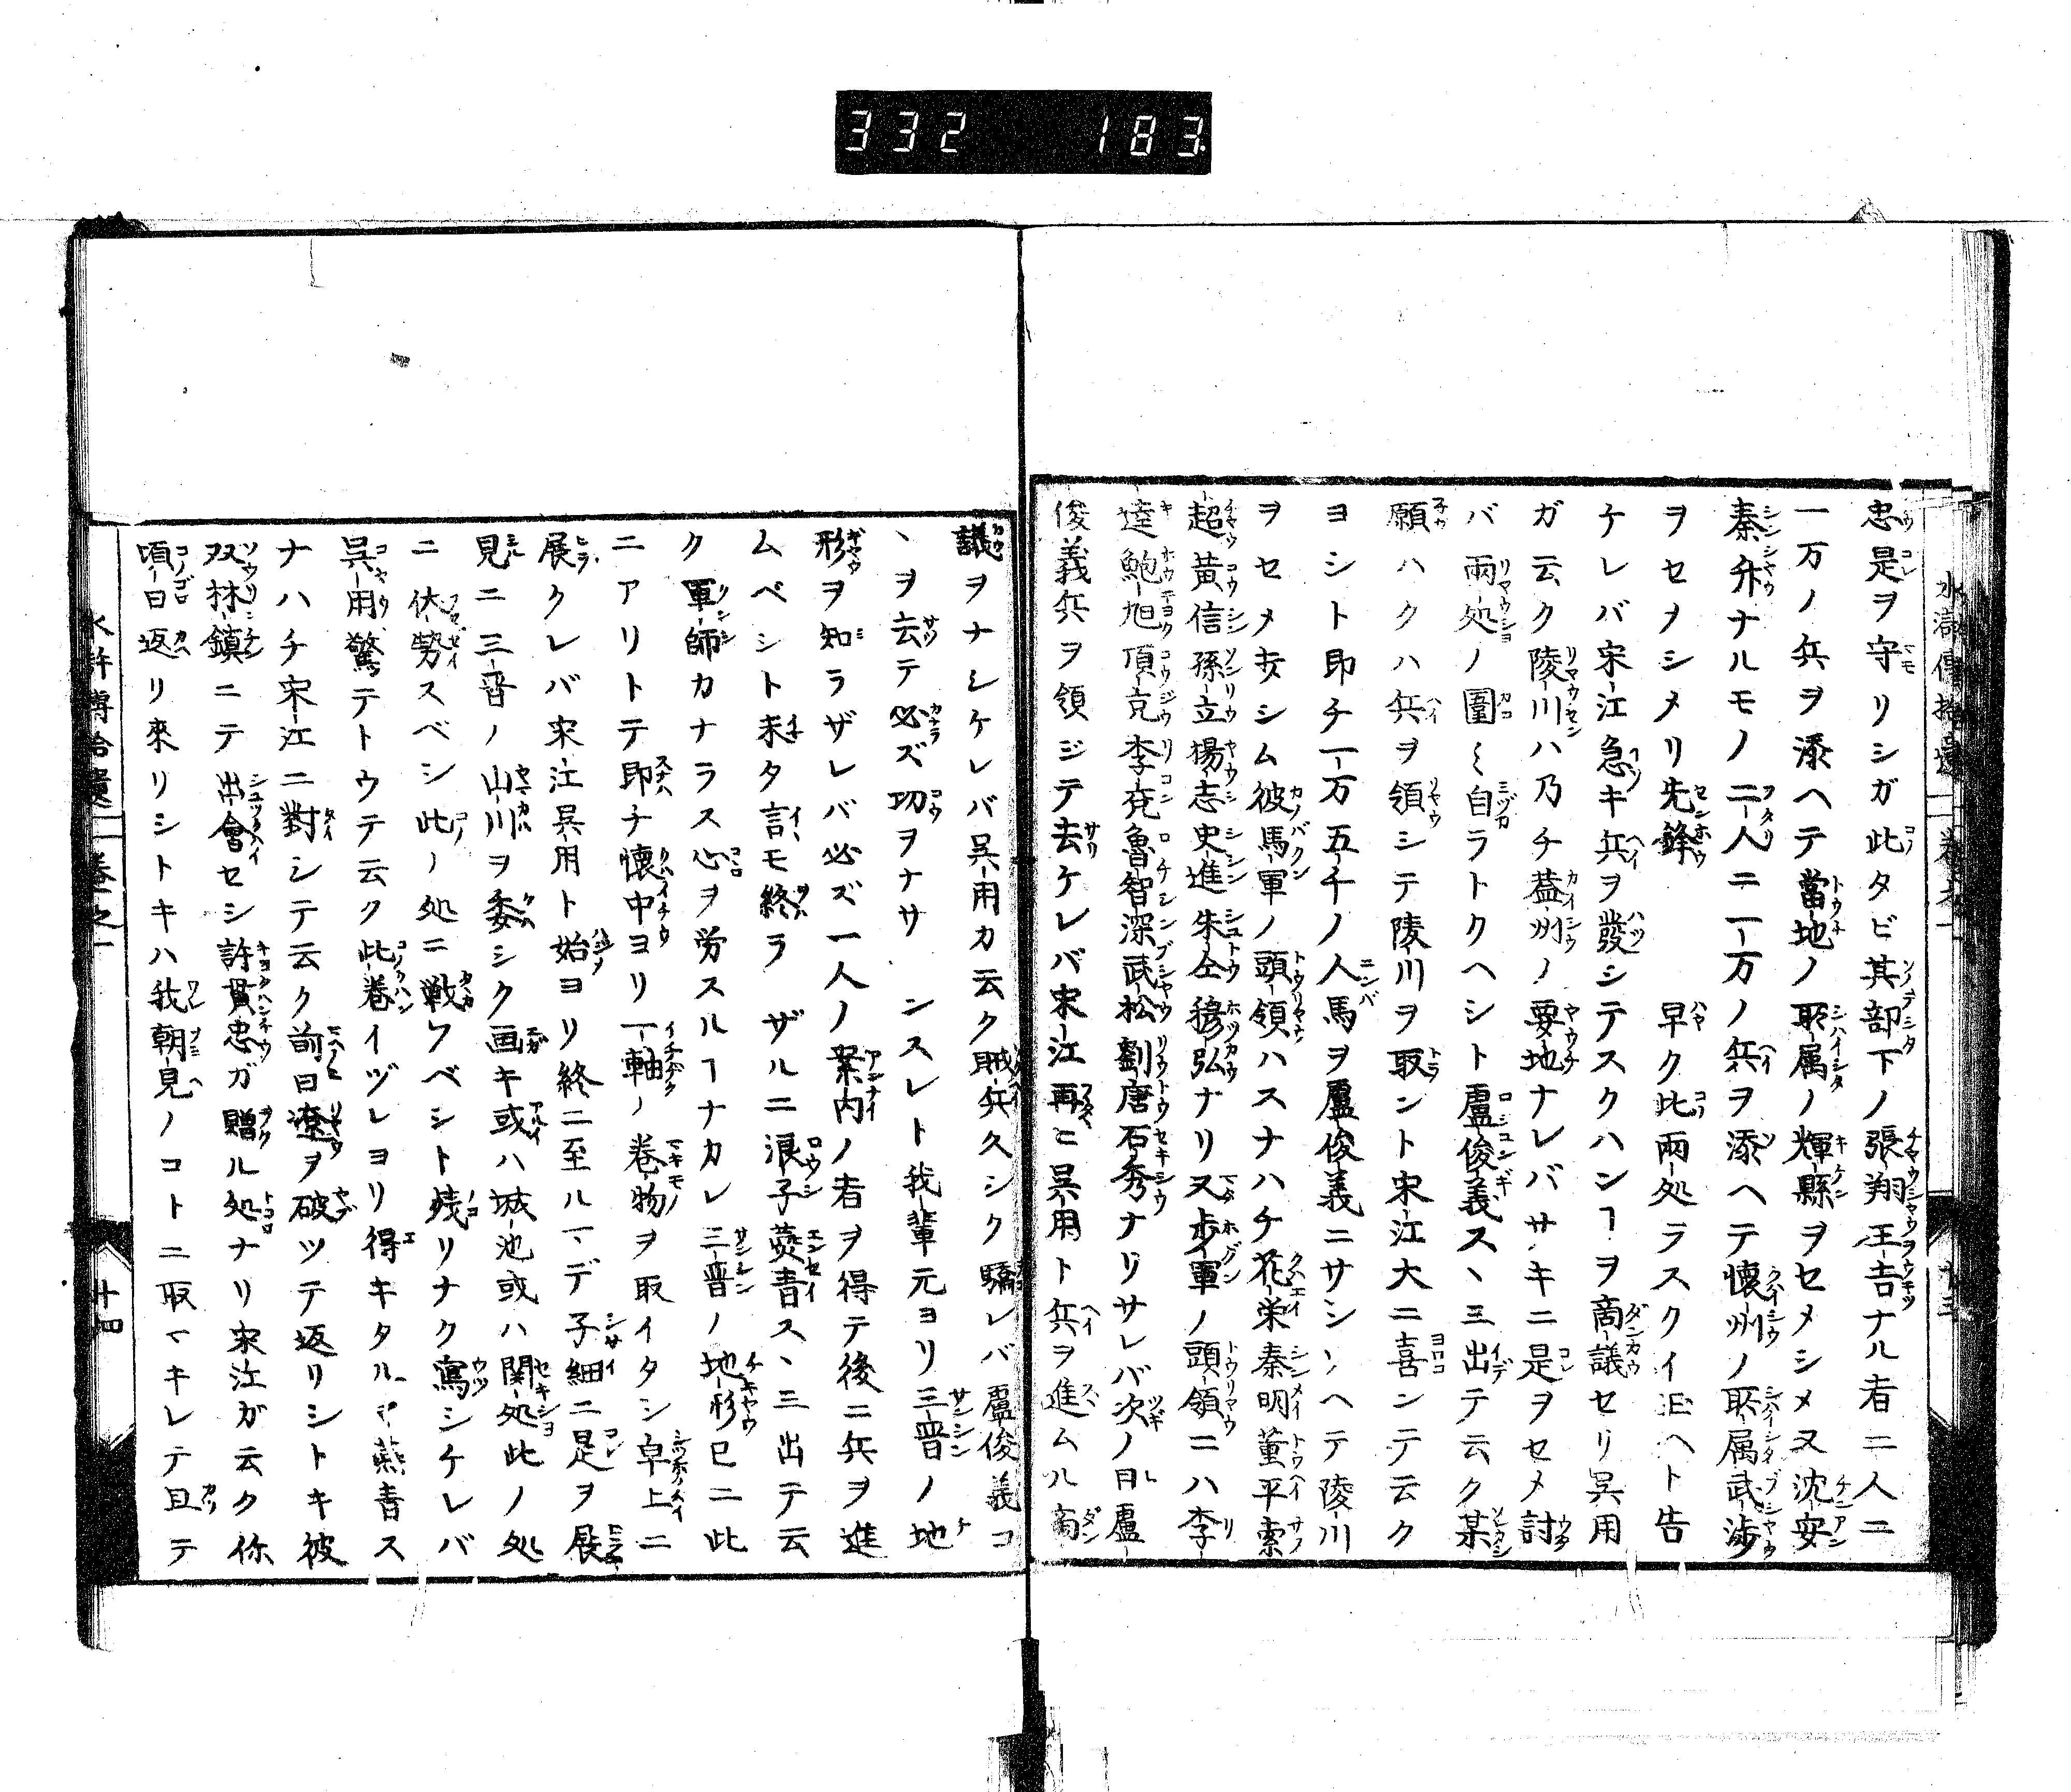 332 183
水滸傳拾遺二巻之一 十三
忠是ヲ守リシガ此タビ其部下ノ張翔王吉ナル者二人ニ
一万ノ兵ヲ添ヘテ當地ノ聡属ノ輝縣ヲセメシメ又沈安
秦升ナルモノ二人ニ一万ノ兵ヲ添ヘテ懐州ノ聡属武渉
ヲセメシメリ先鋒早ク此兩処ヲスクイ玉ヘト告
ケレバ宋江急キ兵ヲ發シテスクハンヿヲ商議セリ呉用
ガ云ク陵川ハ乃チ葢州ノ要地ナレバサキニ是ヲセメ討
バ兩処ノ圍ミ自ラトクヘシト盧俊義スヽミ出テ云ク某
願ハクハ兵ヲ領シテ陵川ヲ取ント宋江大ニ喜ンテ云ク
ヨシト即チ一万五千ノ人馬ヲ盧俊義ニサシソヘテ陵川
ヲセメオシム彼馬軍ノ頭領ハスナハチ花栄秦明董平索
超黄信孫立楊志史進朱仝穆弘ナリ又歩軍ノ頭領ニハ李
逵鮑旭項充李袞魯智深武松劉唐石秀ナリサレバ次ノ日盧
俊義兵ヲ領ジテ去ケレバ宋江再ヒ呉用ト兵ヲ進ムル商
議ヲナシケレバ呉用カ云ク賊兵久シク驕レバ盧俊義コ
ヽヲ去テ必ズ功ヲナサンスレト我輩元ヨリ三晋ノ地
形ヲ知ラザレバ必ズ一人ノ案内ノ者ヲ得テ後ニ兵ヲ進
ムベシト未タ言モ終ラザルニ浪子燕青スヽミ出テ云
ク軍師カナラス心ヲ労スルヿナカレ三晋ノ地形已ニ此
ニアリトテ即チ懐中ヨリ一軸ノ巻物ヲ取イタシ卓上ニ
展クレバ宋江呉用ト始ヨリ終ニ至ルマデ子細ニ是ヲ展
見ニ三晋ノ山川ヲ委シク画キ或ハ城池或ハ関処此ノ処
ニ伏勢スベシ此ノ処ニ戦フベシト残リナク寫シケレバ
呉用驚テトウテ云ク此巻イヅレヨリ得キタルヤ燕青ス
ナハチ宋江ニ對シテ云ク前日遼ヲ破ツテ返リシトキ彼
双林鎮ニテ出會セシ許貫忠ガ贈ル処ナリ宋江ガ云ク你
頃日返リ來リシトキハ我朝見ノコトニ取マキレテ且テ
水滸傳拾遺二巻之一 十四